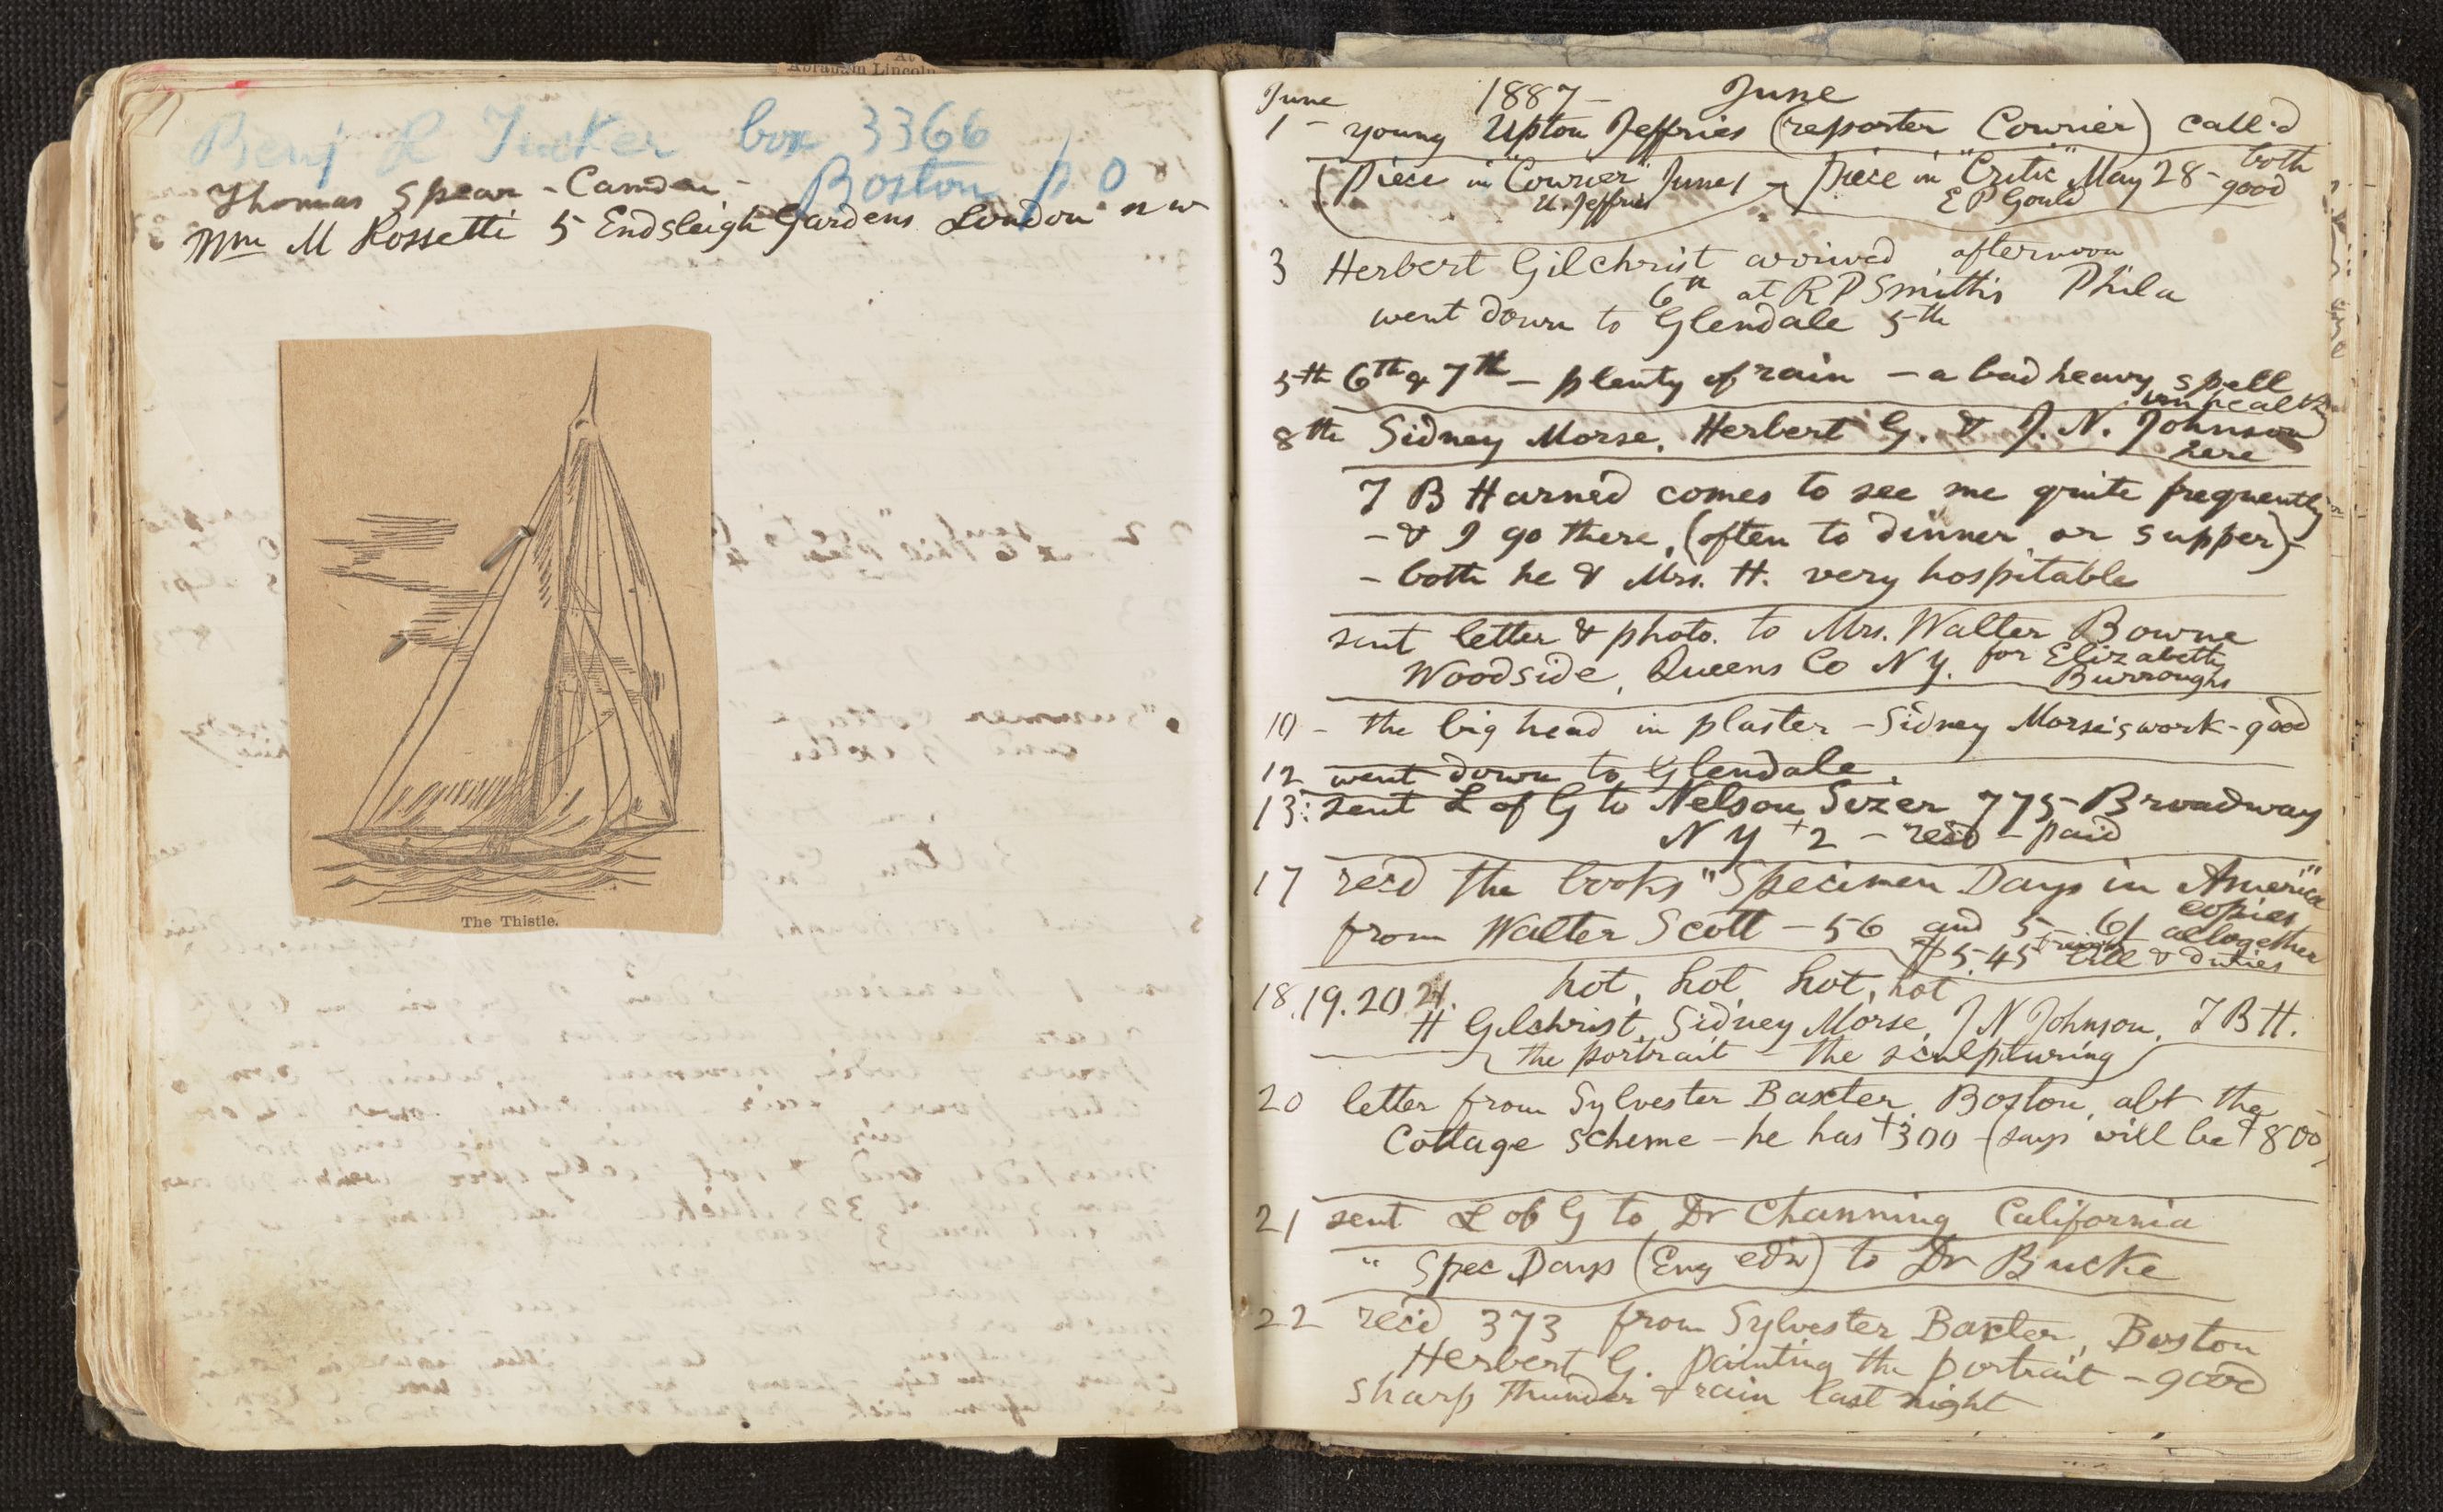 At
Abraham Lincoln
Benj R Tucker box 3366
Boston P O
Thomas Spear - Camden -
Wm M Rossetti 5 Endsleigh Gardens London n w
The Thistle.
June 1887 - June
1 - young Upton Jeffries (reporter Courier) call'd
(piece in "Courier" June 1 - piece in "Critic" May 28 - both good
U. Jeffries E P Gould
3 Herbert Gilchrist arrived afternoon
6th at R P Smith's Phila
went down to Glendale 5th
5th 6th & 7th - plenty of rain - a bad heavy spell
unhealthy
8th Sidney Morse, Herbert G. & J. N. Johnson
here
T B Harned comes to see me quite frequently
- & I go there, (often to dinner or supper) -
- both he & Mrs. H. very hospitable
sent letter & photo. to Mrs. Walter Bowne
Woodside, Queens Co N Y. for Elizabeth
Burroughs
10 - the big head in plaster - Sidney Morse's work - good
12 went down to Glendale.
13: sent L of G to Nelson Sizer 775 Broadway
N Y $2 - rec'd - paid
17 rec'd the books "Specimen Days in America"
from Walter Scott - 56 and 5 - 61 copies altogether
$5.45 freight bill & duties
18, 19. 20 21. hot, hot, hot, hot
H Gilchrist, Sidney Morse, J N Johnson, T B H.
the portrait - the sculpturing
20 letter from Sylvester Baxter, Boston, abt the
Cottage scheme - he has $300 - (says will be $800)
21 sent L of G to Dr Channing California
" Spec Days (Eng ed'n) to Dr Bucke
22 rec'd 373 from Sylvester Baxter, Boston
Herbert G. painting the portrait - good
sharp thunder & rain last night